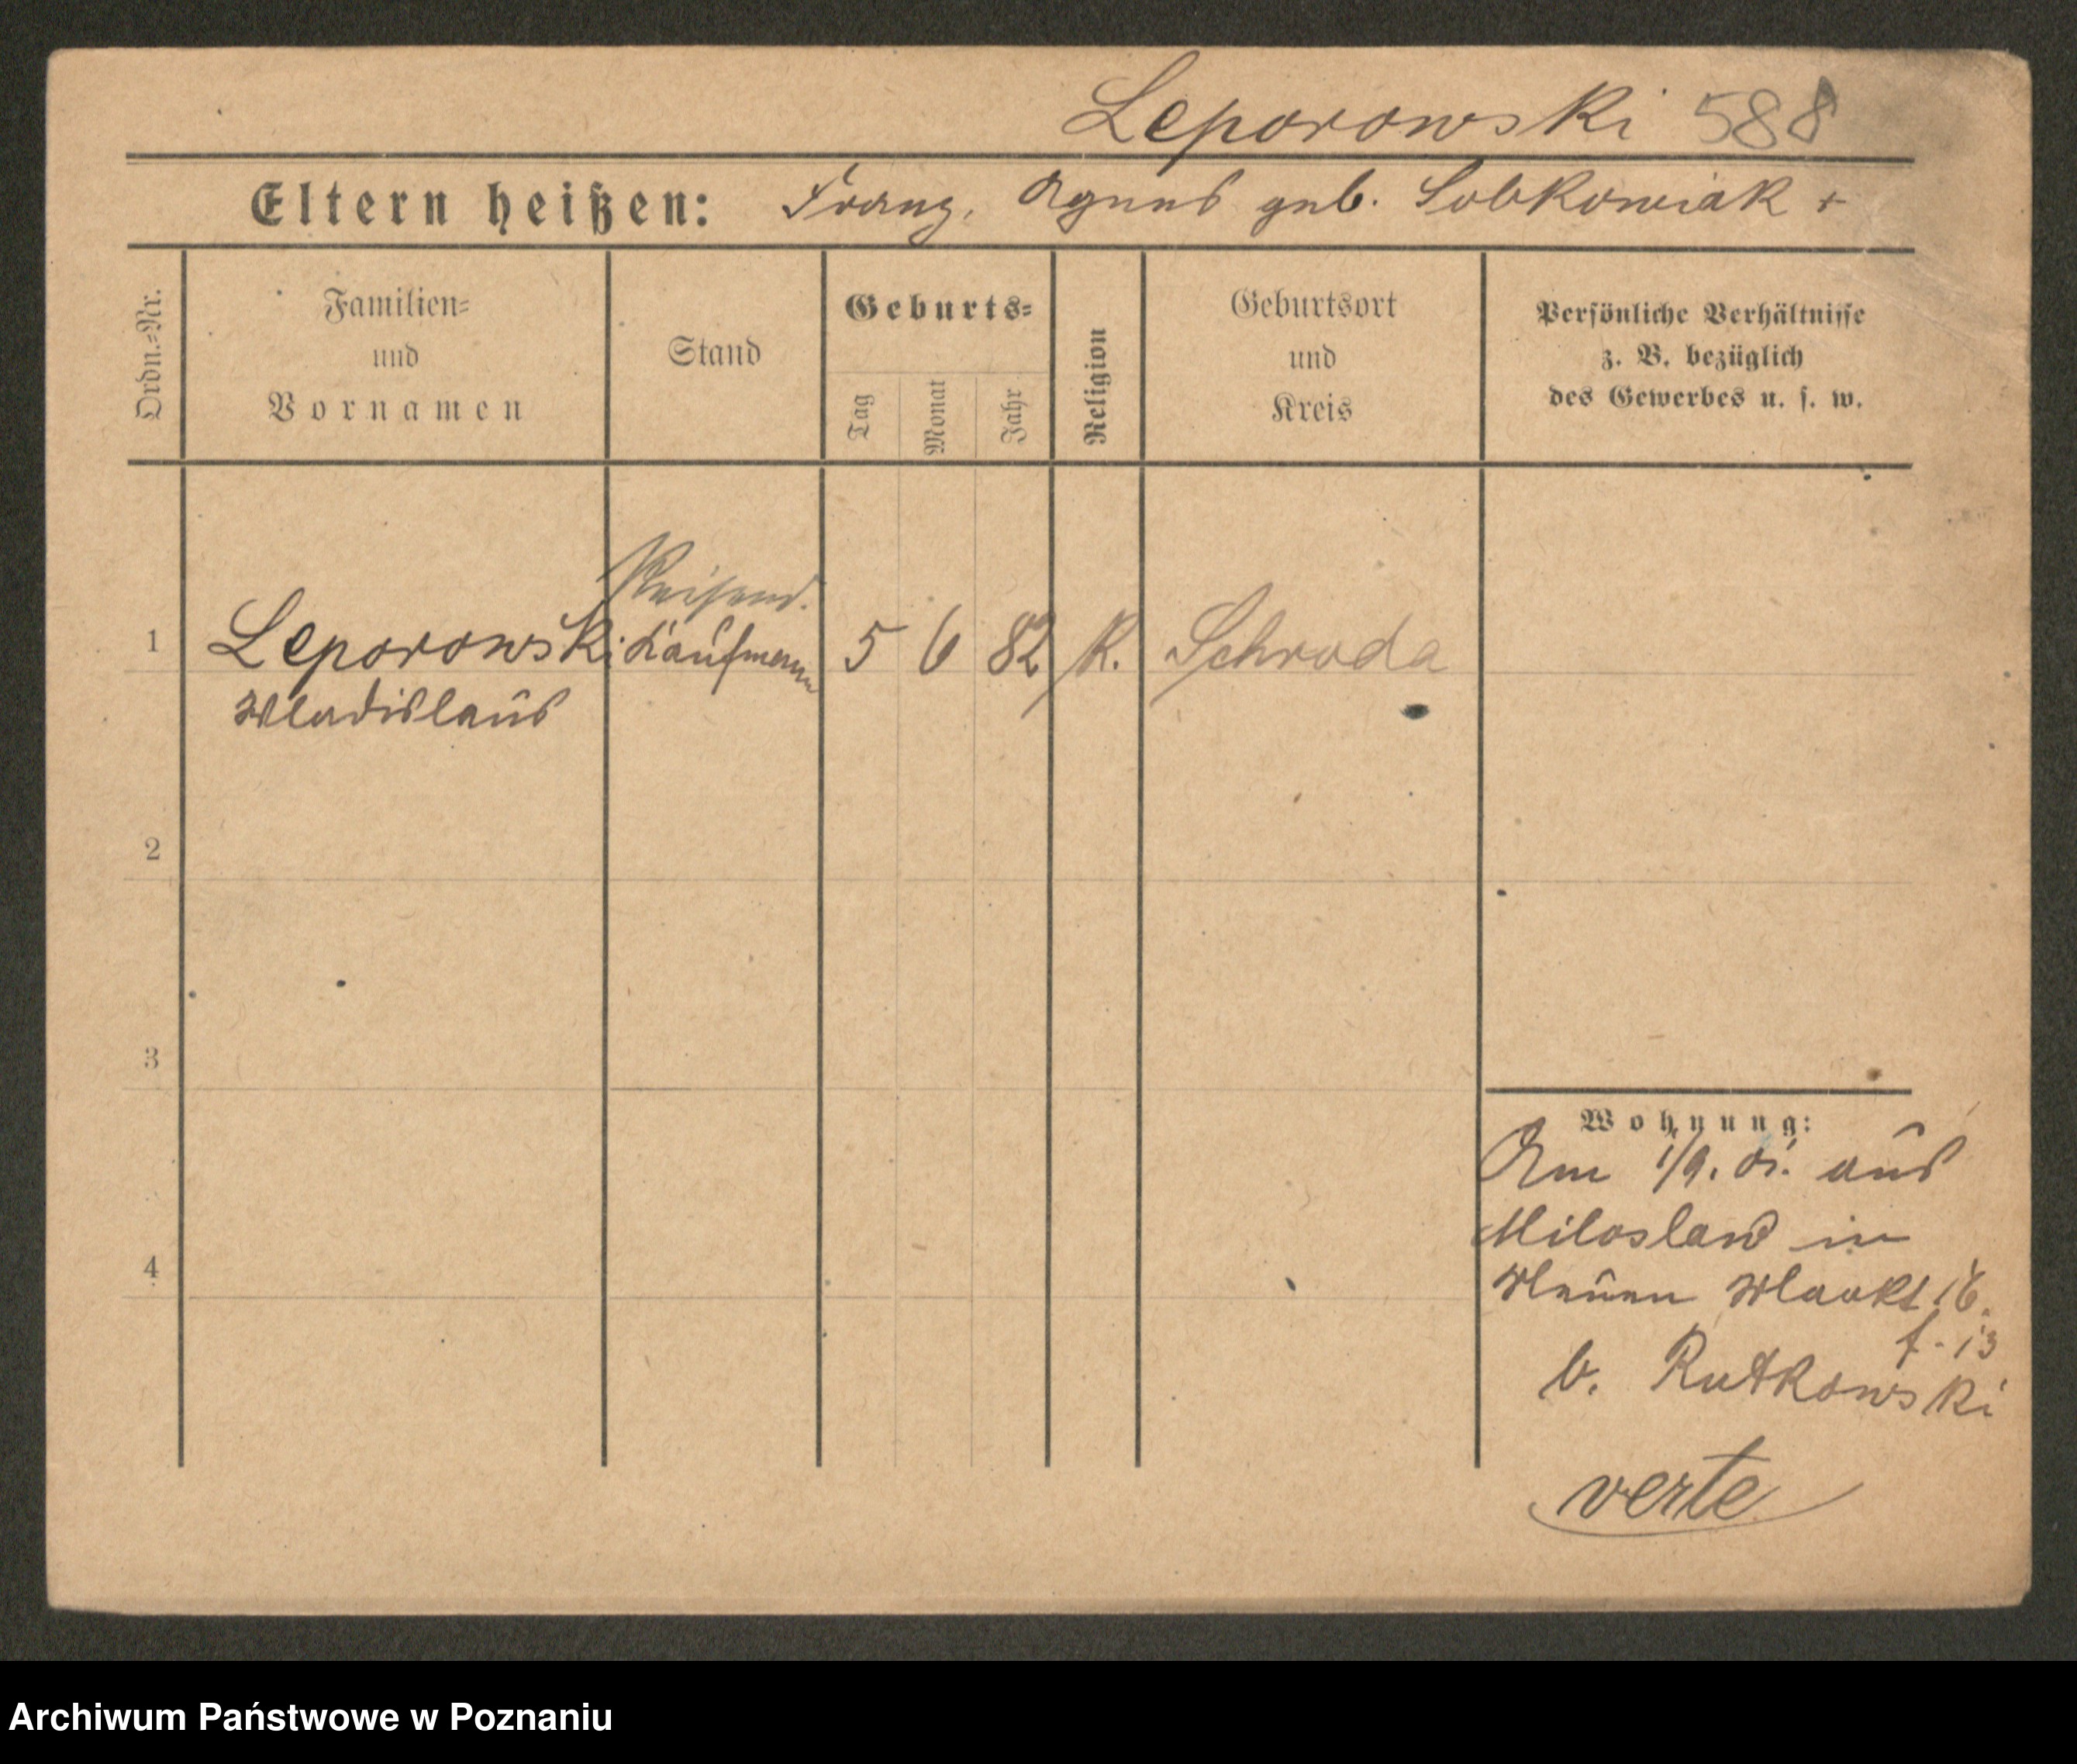 Leporowski 588
Eltern heißen: Franz, Agnes geb. Sobkowiak +
Ordn.-Nr.
Familien-
und
Vornamen
Stand
Geburts-
Tag
Monat
Jahr
Religion
Geburtsort
und
Kreis
Persönliche Verhältnisse
z. B. bezüglich
des Gewerbes u. s. w.
Reisend.
1 Leporowski Kaufmann 5 6 82 K. Schroda
Wladislaus
2
3
4
Wohnung:
Am 1/9. aus
Miloslaw in
Markt 16.
f. 13
b. Rutkowski
verte
Archiwum Państwowe w Poznaniu